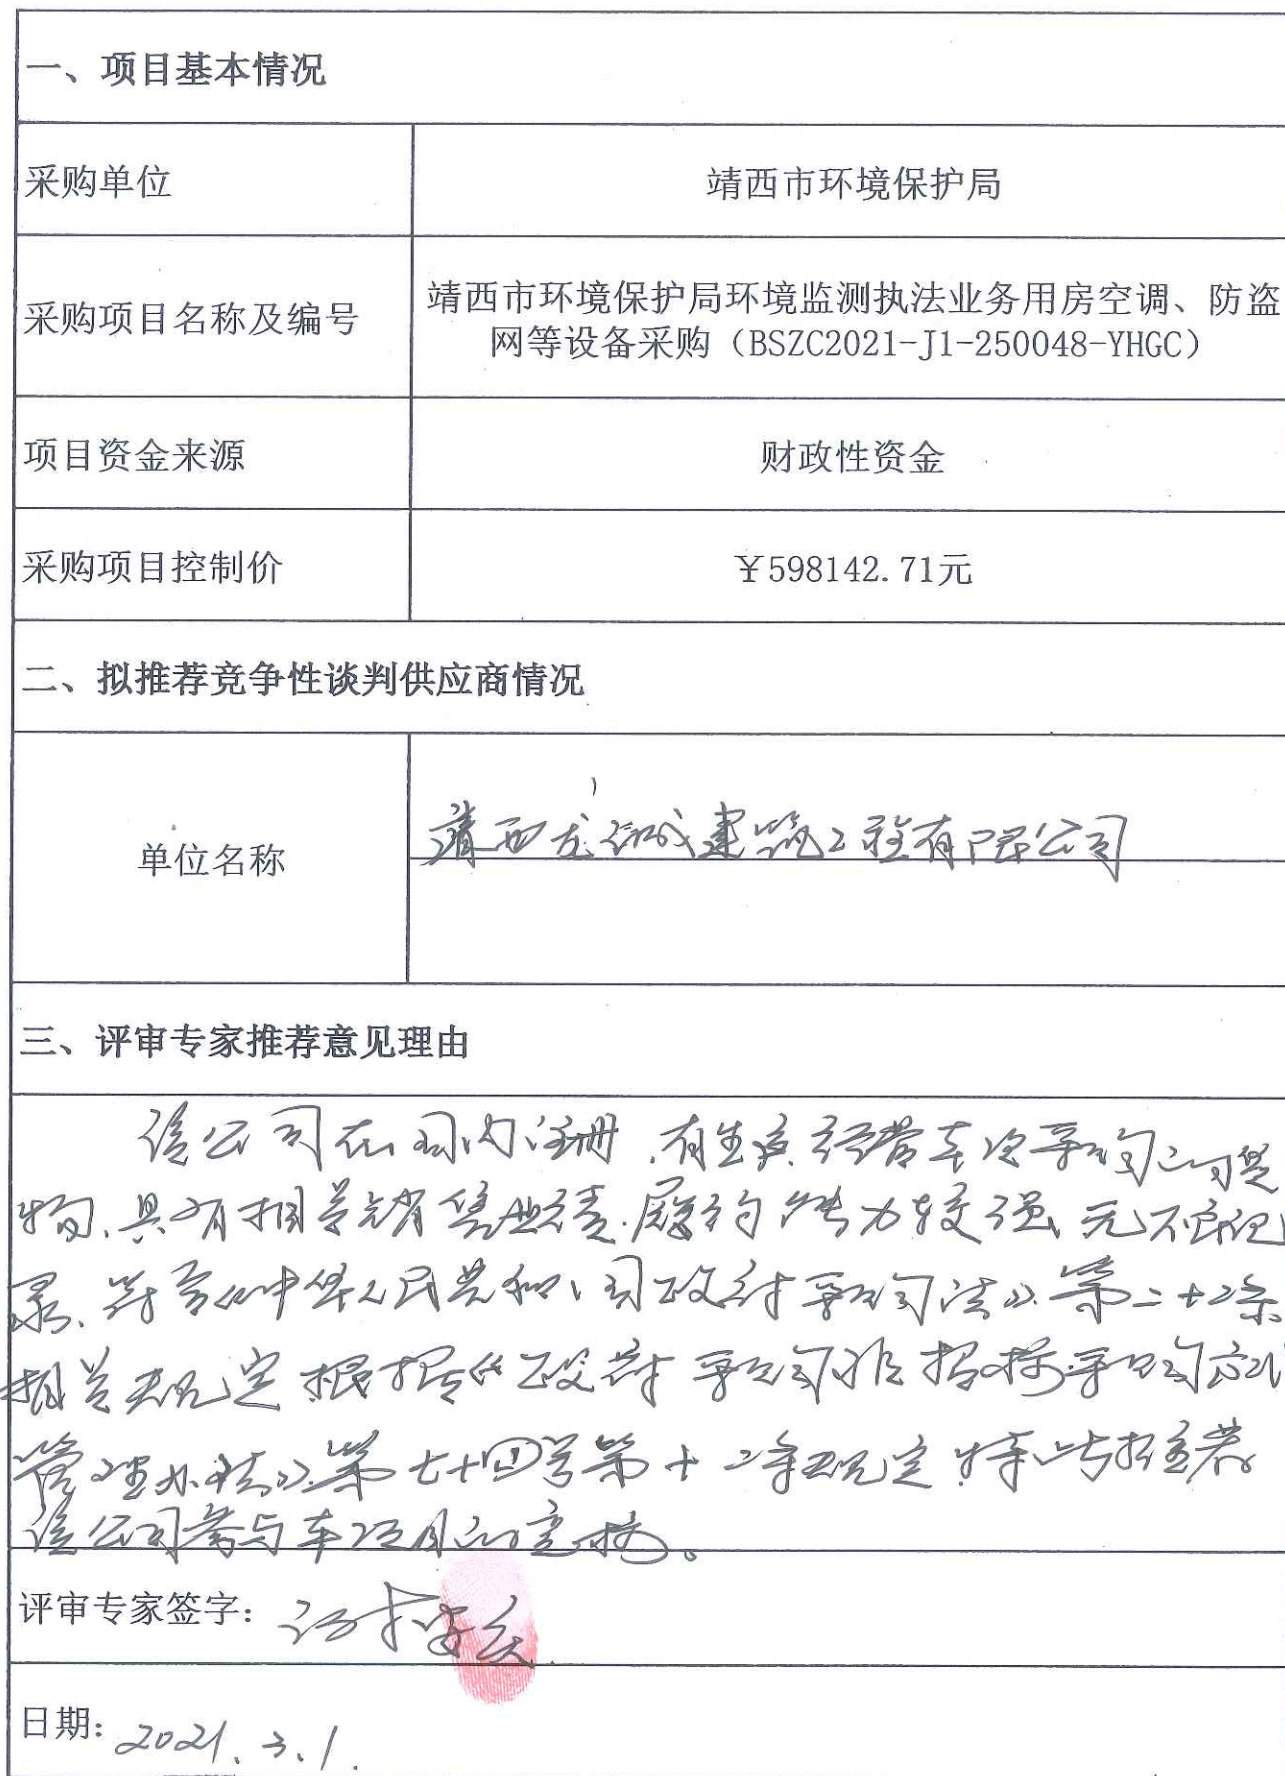 一、项目基本情况
采购单位
靖西市环境保护局
采购项目名称及编号
靖西市环境保护局环境监测执法业务用房空调、防盗
网等设备采购（BSZC2021-J1-250048-YHGC）
项目资金来源
财政性资金
采购项目控制价
￥598142.71元
二、拟推荐竞争性谈判供应商情况
单位名称
靖西龙诚建筑工程有限公司
三、评审专家推荐意见理由
该公司在国内注册，有生产经营本次采购的货
物，具有相关销售业绩，履约能力较强，无不良记
录，符合《中华人民共和国政府采购法》第二十二条
相关规定，根据《政府采购非招标采购方式
管理办法》第七十四号第十二条规定，特此推荐
该公司参与本项目的竞标。
评审专家签字：
日期：2021.3.1.